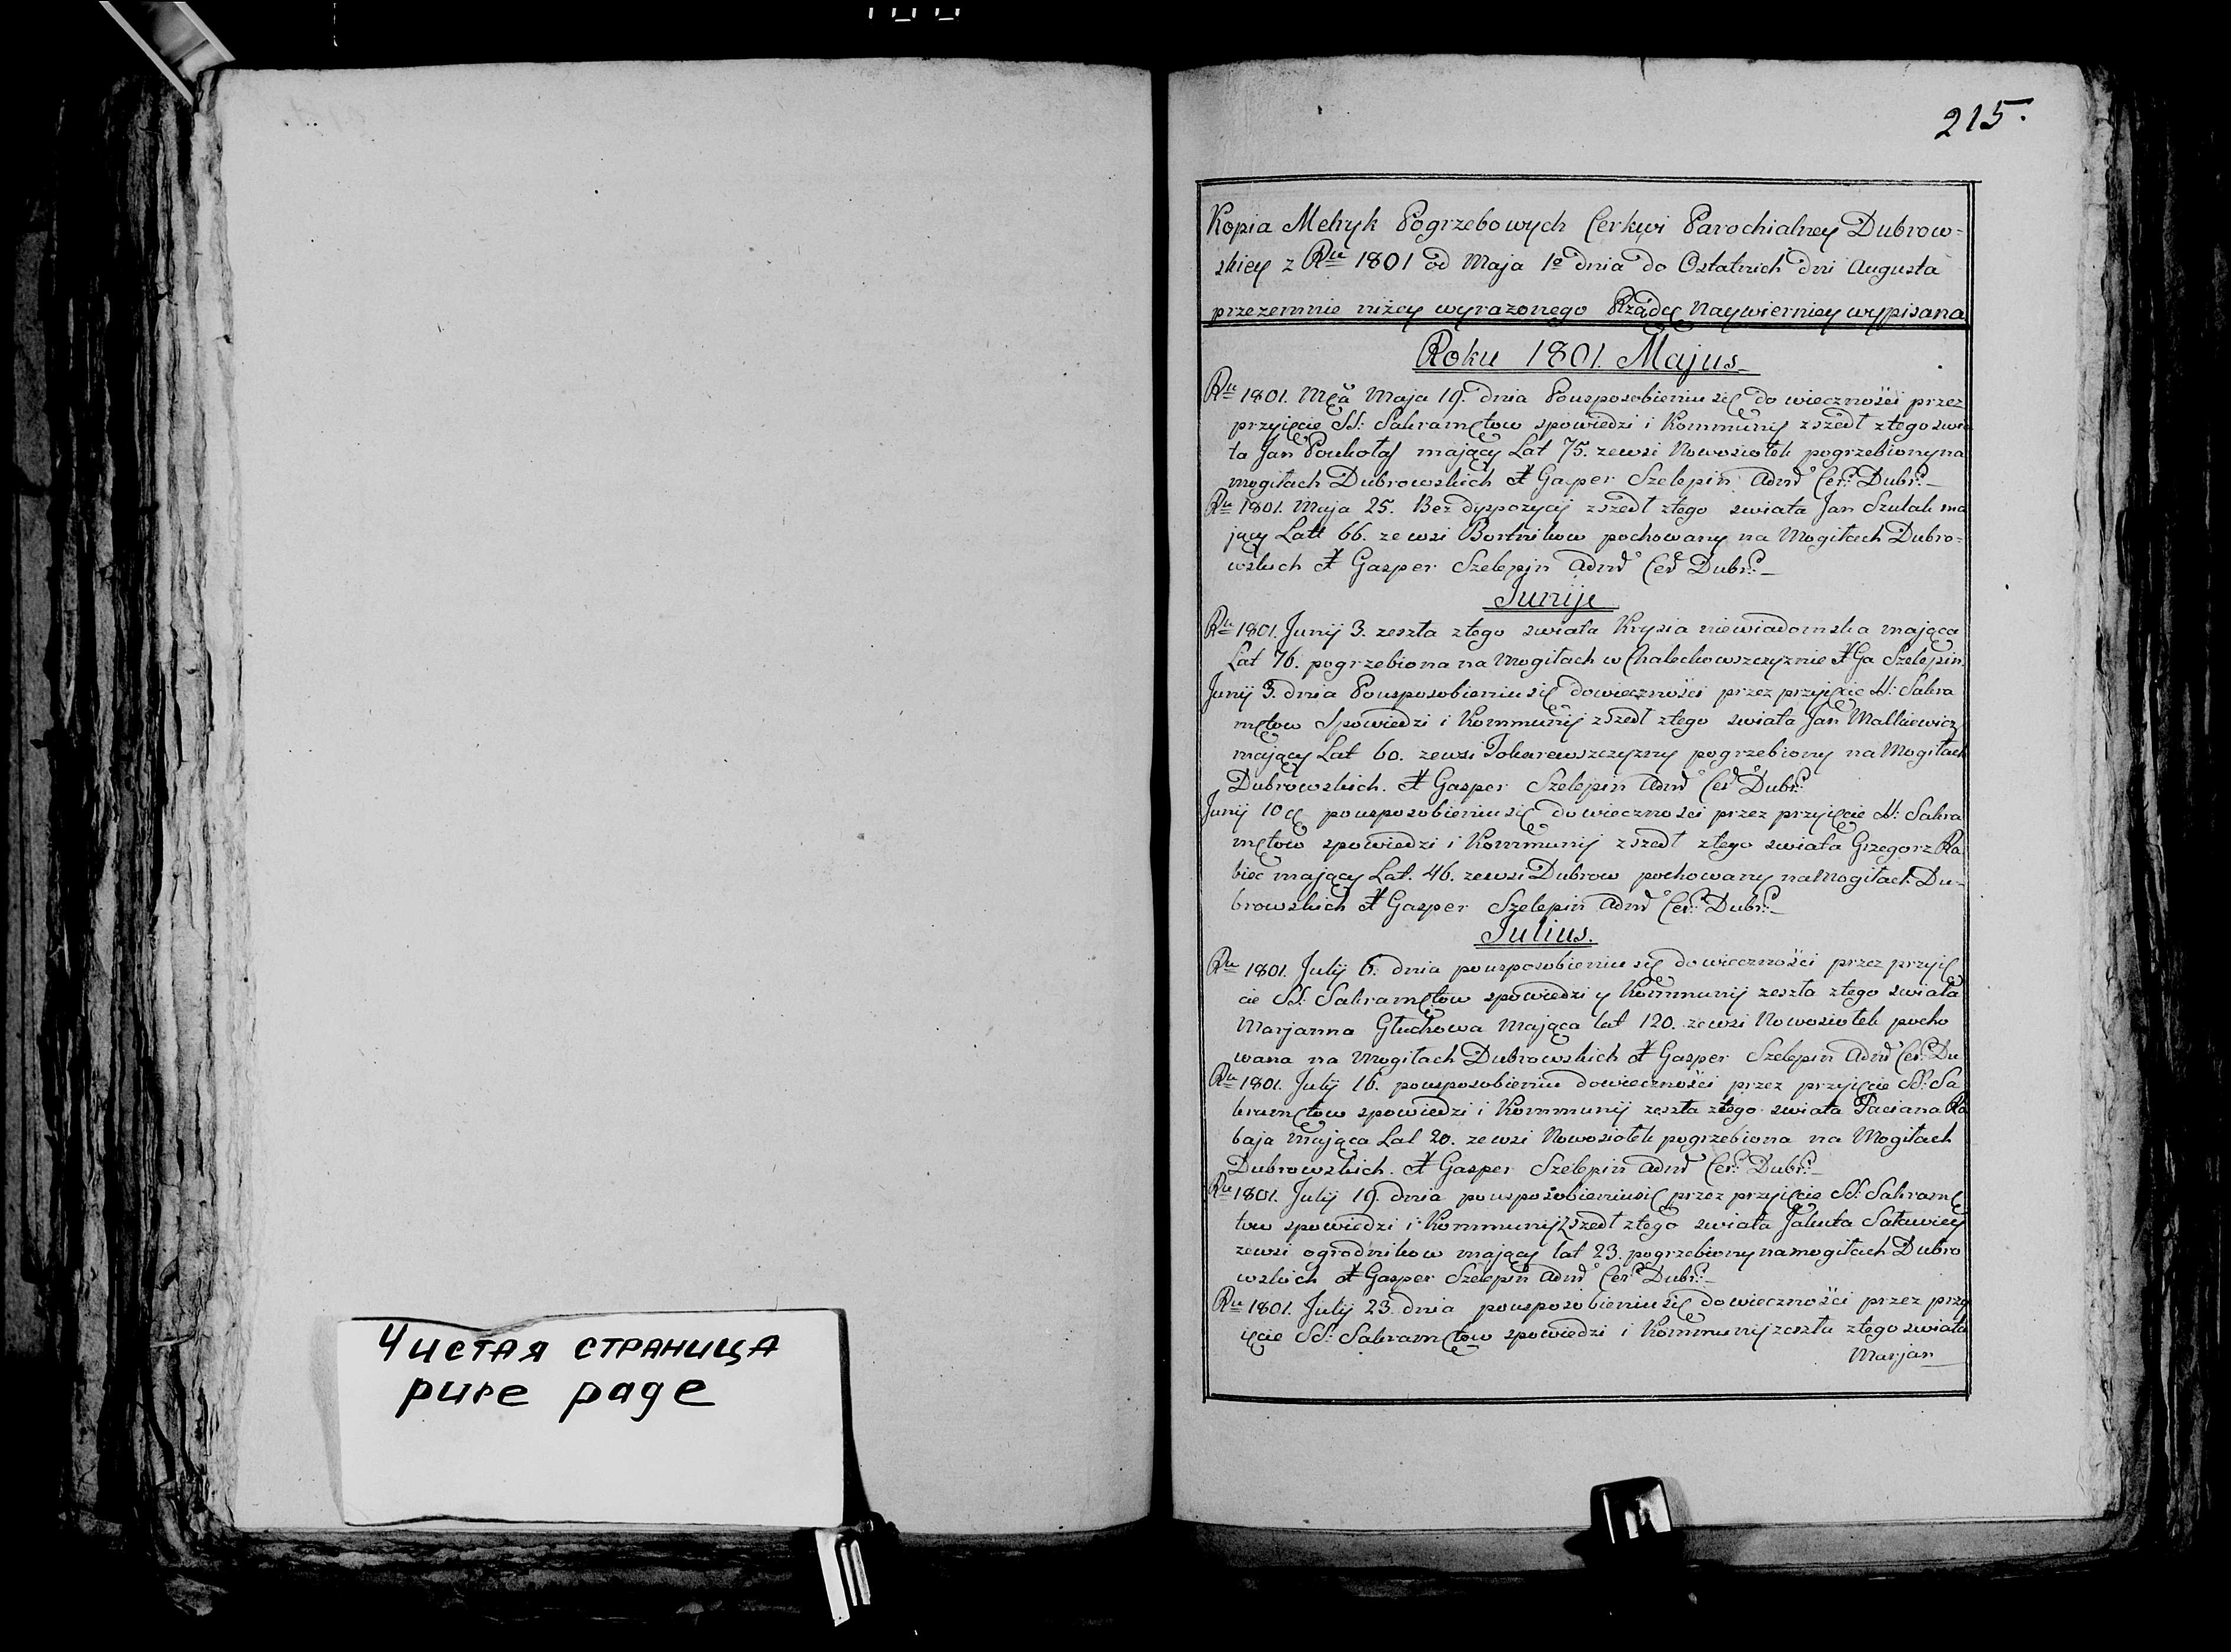 Чистая страница
pure page
215.
Kopia Metryk Pogrzebowych Cerkwi Parochialney Dubrow-
skiey z Ru 1801 od Maja 1o dnia do Ostatnich dni Augusta
przezemnie niżey wyrażonego Rządcę Naywierniey wypisana
Roku 1801. Majus
Ru 1801. Mca Maja 19. dnia Pousposobieniu się do wieczności przez
przyięcie SS: Sakramętow spowiedzi i Kommunij zszedł ztego swia
ta Jan mający Lat 75. zewsi Nowosiołek pogrzebiony na
mogiłach Dubrowskich X Gasper Szelepin Admr Cer: Dubr:
Ru 1801. Maja 25. Bez dyspozycij zszedł ztego swiata Jan Szulak ma
jący Latt 66. ze wsi Bortnikow pochowany na Mogiłach Dubro=
wskich X Gasper Szelepin Admr Cer Dubr:
Junije
Ru 1801. Junij 3. zeszła ztego swiata Krysia niewiadomska mająca
Lat 76. pogrzebiona na Mogiłach w Chalechowszczyznie X Ga Szelepin
Junij 3. dnia Pousposobieniu się dowieczności przez przyięcie SS: Sakra
mętow Spowiedzi i Kommunij zszedł ztego swiata Jan Malkiewicz
mający Lat 60. zewsi Tokarewszczyzny pogrzebiony na Mogiłach
Dubrowskich. X Gasper Szelepin Admr Cer Dubr:
Junij 10 pousposobieniu się do wieczności przez przyięcie SS: Sakra
mętow spowiedzi i Kommunij zszedł ztego swiata Grzegorz Ra
biec mający Lat. 46. zewsi Dubrow pochowany na Mogiłach Du-
browskich X Gasper Szelepin Admr Cer: Dubr:
Julius.
Ru 1801. Julij 6. dnia pousposobieniu się do wieczności przez przyię
cie SS: Sakramętow spowiedzi y Kommunij zeszła ztego swiata
Marjanna Głuchowa Mająca lat 120. zewsi Nowosiołek pocho
wana na Mogiłach Dubrowskich X Gasper Szelepin Admr Cer: Du
Ru 1801. Julij 16. pousposobieniu dowieczności przez przyięcie SS: Sa
kramętow spowiedzi i Kommunij zeszła ztego swiata Taciana Ra
baja mająca Lat 20. ze wsi Nowosiołek pogrzebiona na Mogiłach
Dubrowskich. X Gasper Szelepin Admr Cer: Dubr:
Ru 1801. Julij 19. dnia pousposobieniusię przez przyięcie SS: Sakramę
tow spowiedzi i Kommunij zszedł ztego swiata Jakuta
zewsi ogrodnikow mający lat 23. pogrzebiony na mogiłach Dubro
wskich X Gasper Szelepin Admr Cer: Dubr:
Ru 1801. Julij 23. dnia pousposobieniu się do wieczności przez przy
ięcie SS: Sakramętow spowiedzi i Kommunij zeszła ztego swiata
Marjan